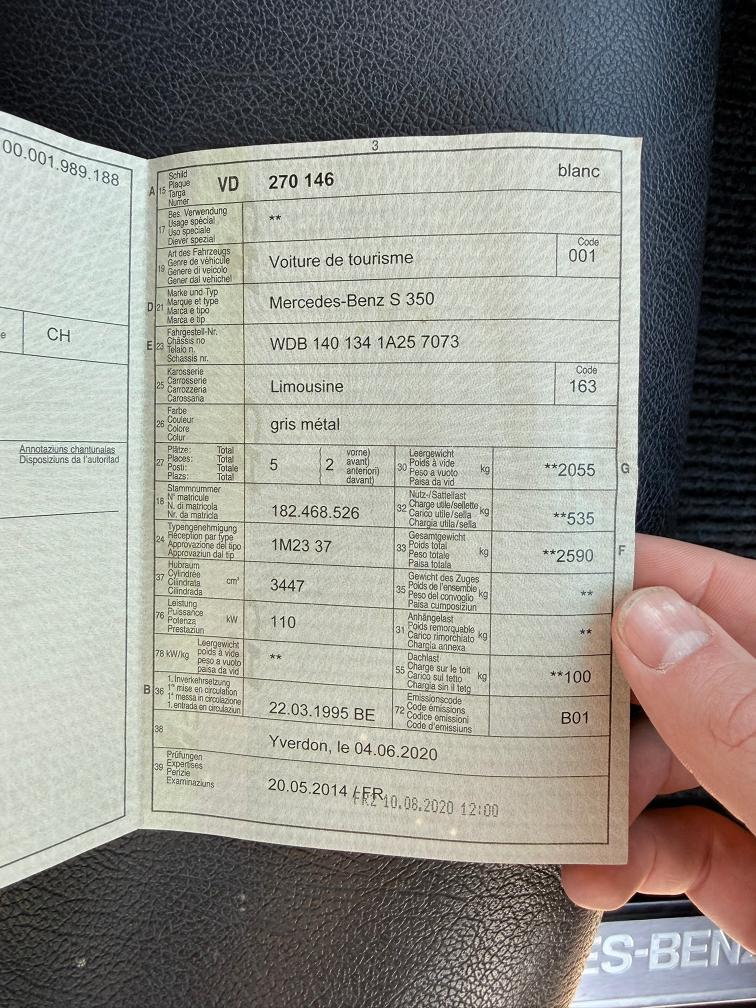 00.001.989.188
e
CH
Annotaziuns chantunalas
Disposiziuns da l'autoritad
3
A 15 Schild
Plaque
Targa
Numer
VD 270 146 blanc
17 Bes. Verwendung
Usage spécial
Uso speciale
Diever spezial
**
19 Art des Fahrzeugs
Genre de véhicule
Genere di veicolo
Gener dal vehichel
Voiture de tourisme
Code
001
D 21 Marke und Typ
Marque et type
Marca e tipo
Marca e tip
Mercedes-Benz S 350
E 23 Fahrgestell-Nr.
Châssis no
Telaio n.
Schassis nr.
WDB 140 134 1A25 7073
25 Karosserie
Carrosserie
Carrozzeria
Carossaria
Limousine
Code
163
26 Farbe
Couleur
Colore
Colur
gris métal
27 Plätze: Total
Places: Total
Posti: Totale
Plazs: Total
5
2
vorne)
avant)
anteriori)
davant)
30 Leergewicht
Poids à vide
Peso a vuoto
Paisa da vid
kg
**2055
G
18 Stammnummer
N° matricule
N. di matricola
Nr. da matricla
182.468.526
32 Nutz-/Sattellast
Charge utile/sellette
Carico utile/sella
Chargia utila/sella
kg
**535
24 Typengenehmigung
Réception par type
Approvazione del tipo
Approvaziun dal tip
1M23 37
33 Gesamtgewicht
Poids total
Peso totale
Paisa totala
kg
**2590
F
37 Hubraum
Cylindrée
Cilindrata
Cilindrada
cm³
3447
35 Gewicht des Zuges
Poids de l'ensemble
Peso del convoglio
Paisa cumposiziun
kg
**
76 Leistung
Puissance
Potenza
Prestaziun
kW
110
31 Anhängelast
Poids remorquable
Carico rimorchiato
Chargia annexa
kg
**
78 kW/kg
Leergewicht
poids à vide
peso a vuoto
paisa da vid
**
55 Dachlast
Charge sur le toit
Carico sul tetto
Chargia sin il tetg
kg
**100
B 36 1. Inverkehrsetzung
1re mise en circulation
1a messa in circolazione
1. entrada en circulaziun
22.03.1995 BE
72 Emissionscode
Code émissions
Codice emissioni
Code d'emissiuns
B01
38
Yverdon, le 04.06.2020
39 Prüfungen
Expertises
Perizie
Examinaziuns
20.05.2014 / FR
FRZ 10.08.2020 12:00
ES-BENZ